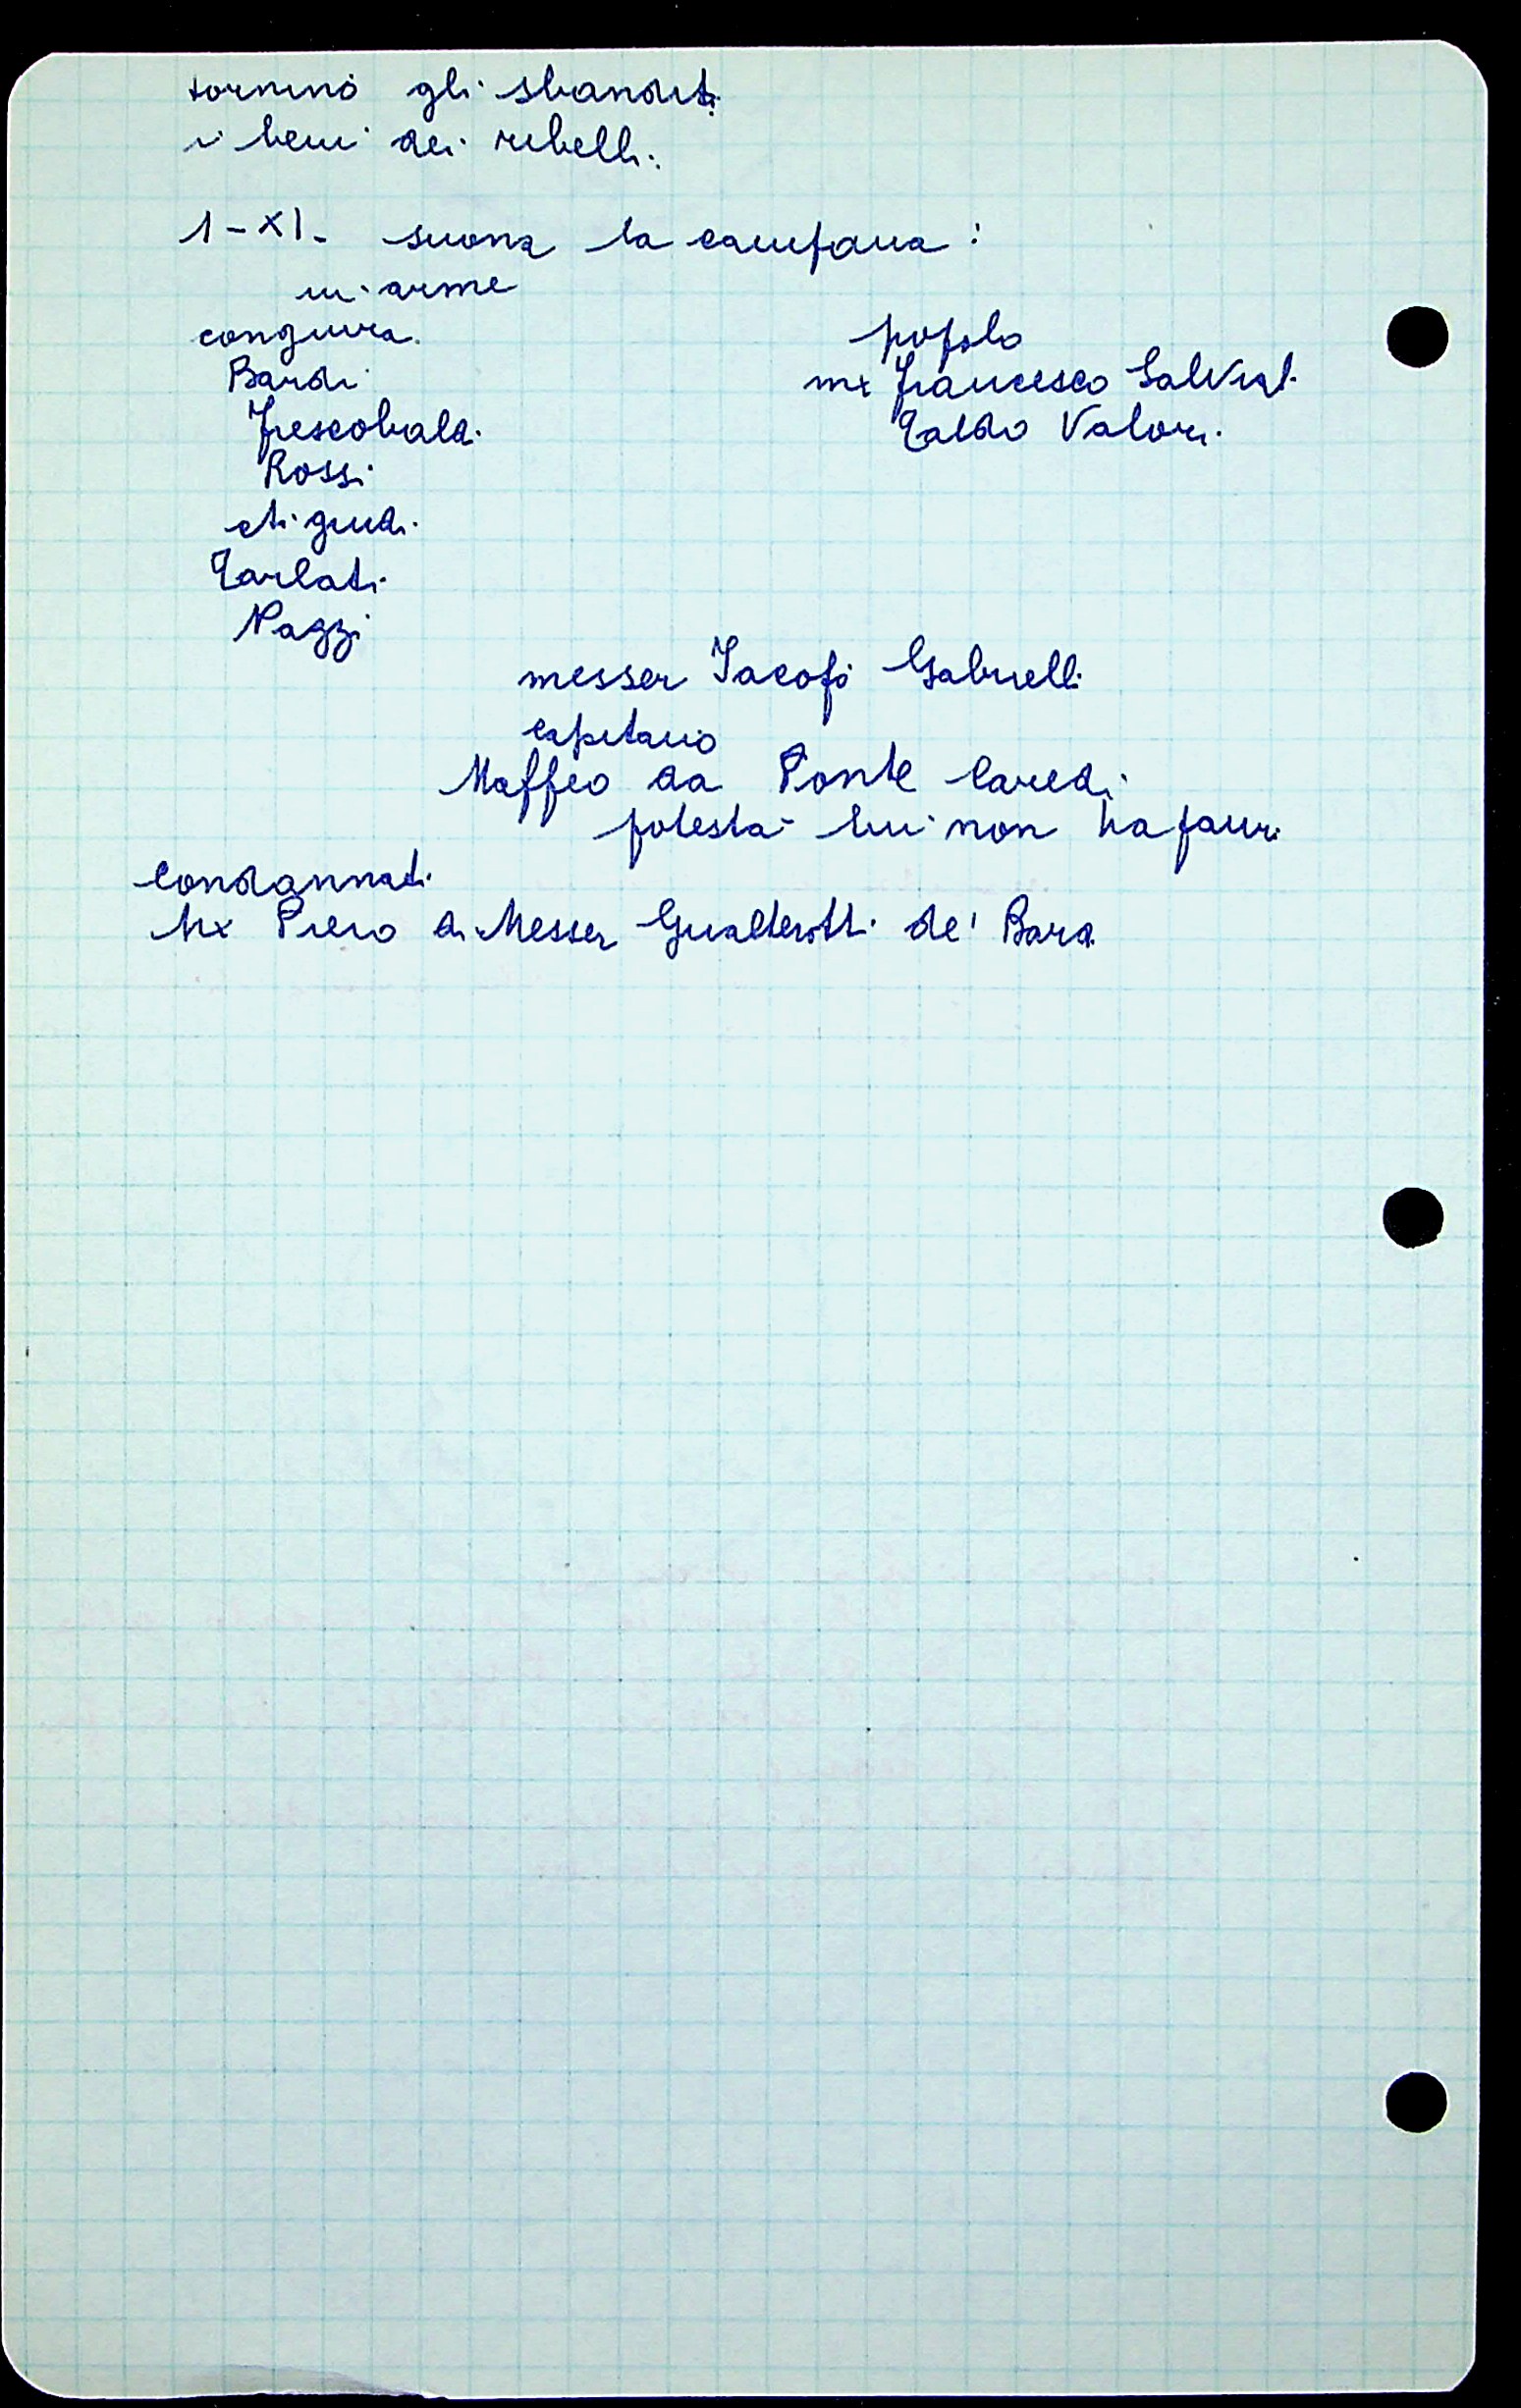 tornino gli sbanditi
i beni dei ribelli.
1-XI. suona la campana:
in arme
congiura.
Bardi
Frescobaldi
Rossi
Tarlati
Pazzi
popolo
mx Francesco Salviati
Taldo Valori
messer Iacopo Gabrielli
capitano
Maffeo da Ponte Caredi
potestà lui non ha paura
condannati
Mx Piero di Messer Gualterotti de' Bardi